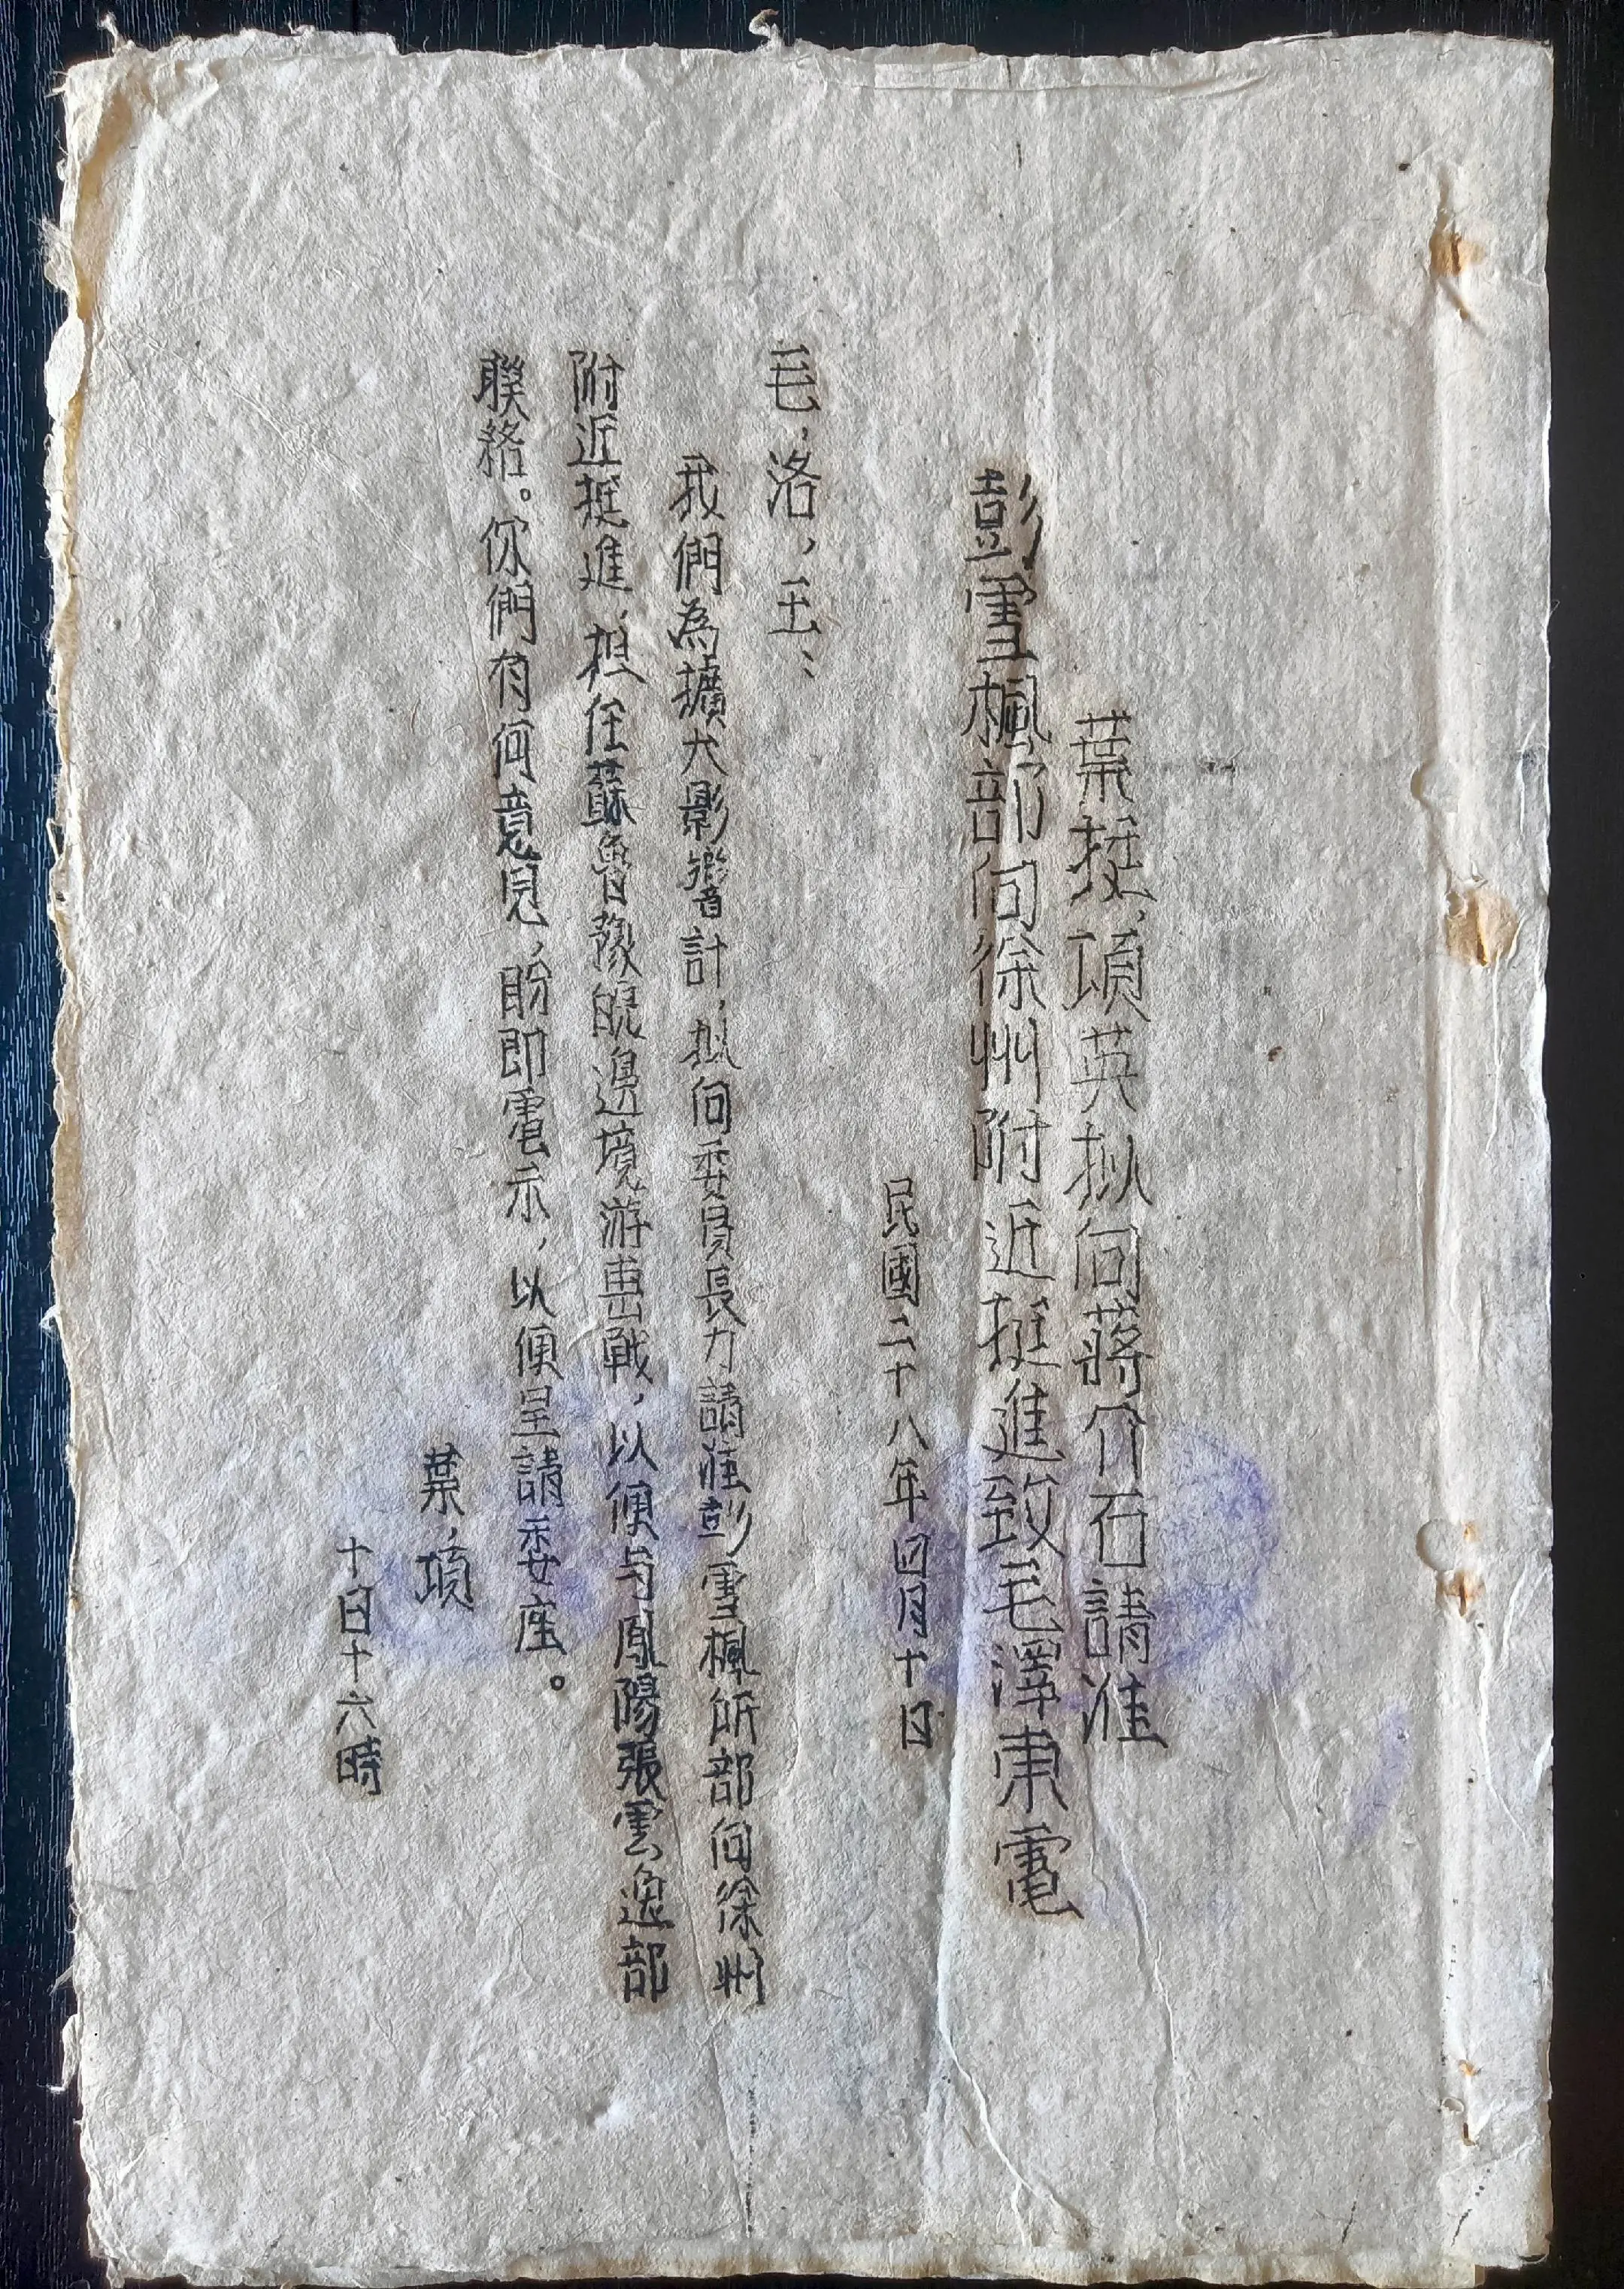 葉挺、項英拟向蔣介石請准
彭雪楓部向徐州附近挺進致毛澤東電
民國二十八年四月十日
毛，洛，王：
我們為擴大影響計，拟向委員長力請准彭雪楓所部向徐州
附近挺進，担任蘇魯豫皖邊境游击戰，以便与鳳陽張雲逸部
聯絡。你們有何意見，盼即電示，以便呈請委座。
葉，項
十日十六時